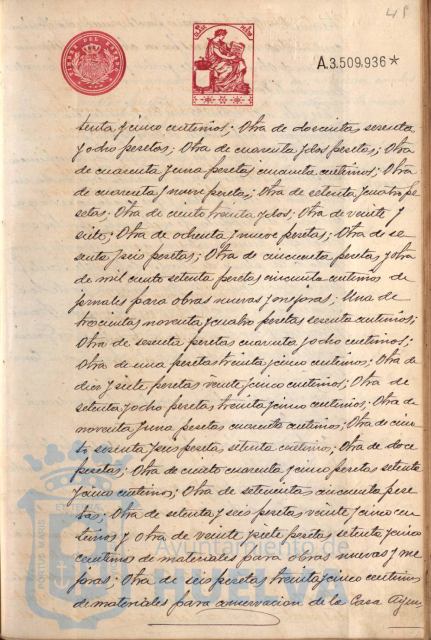 A.3.509.936*
tenta y cinco centimos; Otra de doscientas sesenta
y ocho pesetas; Otra de cuarenta y dos pesetas; Otra
de cuarenta y una pesetas cuarenta centimos; Otra
de cuarenta y nueve pesetas; Otra de setenta y cuatro pe
setas; Otra de ciento treinta y dos; Otra de veinte y
siete; Otra de ochenta y nueve pesetas; Otra de se
senta y seis pesetas; Otra de cincuenta pesetas y otra
de mil ciento setenta pesetas cincuenta centimos de
jornales para obras nuevas y mejoras; Una de
trescientas noventa y cuatro pesetas sesenta centimos;
Otra de sesenta pesetas cuarenta y ocho centimos;
Otra de una pesetas treinta y cinco centimos; Otra de
diez y siete pesetas veinte y cinco centimos; Otra de
setenta y ocho pesetas treinta y cinco centimos; Otra de
noventa y una pesetas cuarenta centimos; Otra de cien
to sesenta y seis pesetas setenta centimos; Otra de doce
pesetas; Otra de ciento cuarenta y cinco pesetas setenta
y cinco centimos; Otra de setecientas cincuenta pese
tas; Otra de setenta y seis pesetas veinte y cinco cen
timos y otra de veinte y siete pesetas setenta y cinco
centimos de materiales para obras nuevas y me
joras; Otra de seis pesetas treinta y cinco centimos
de materiales para conservacion de la Casa Ayun
Ayuntamiento de
HUELVA